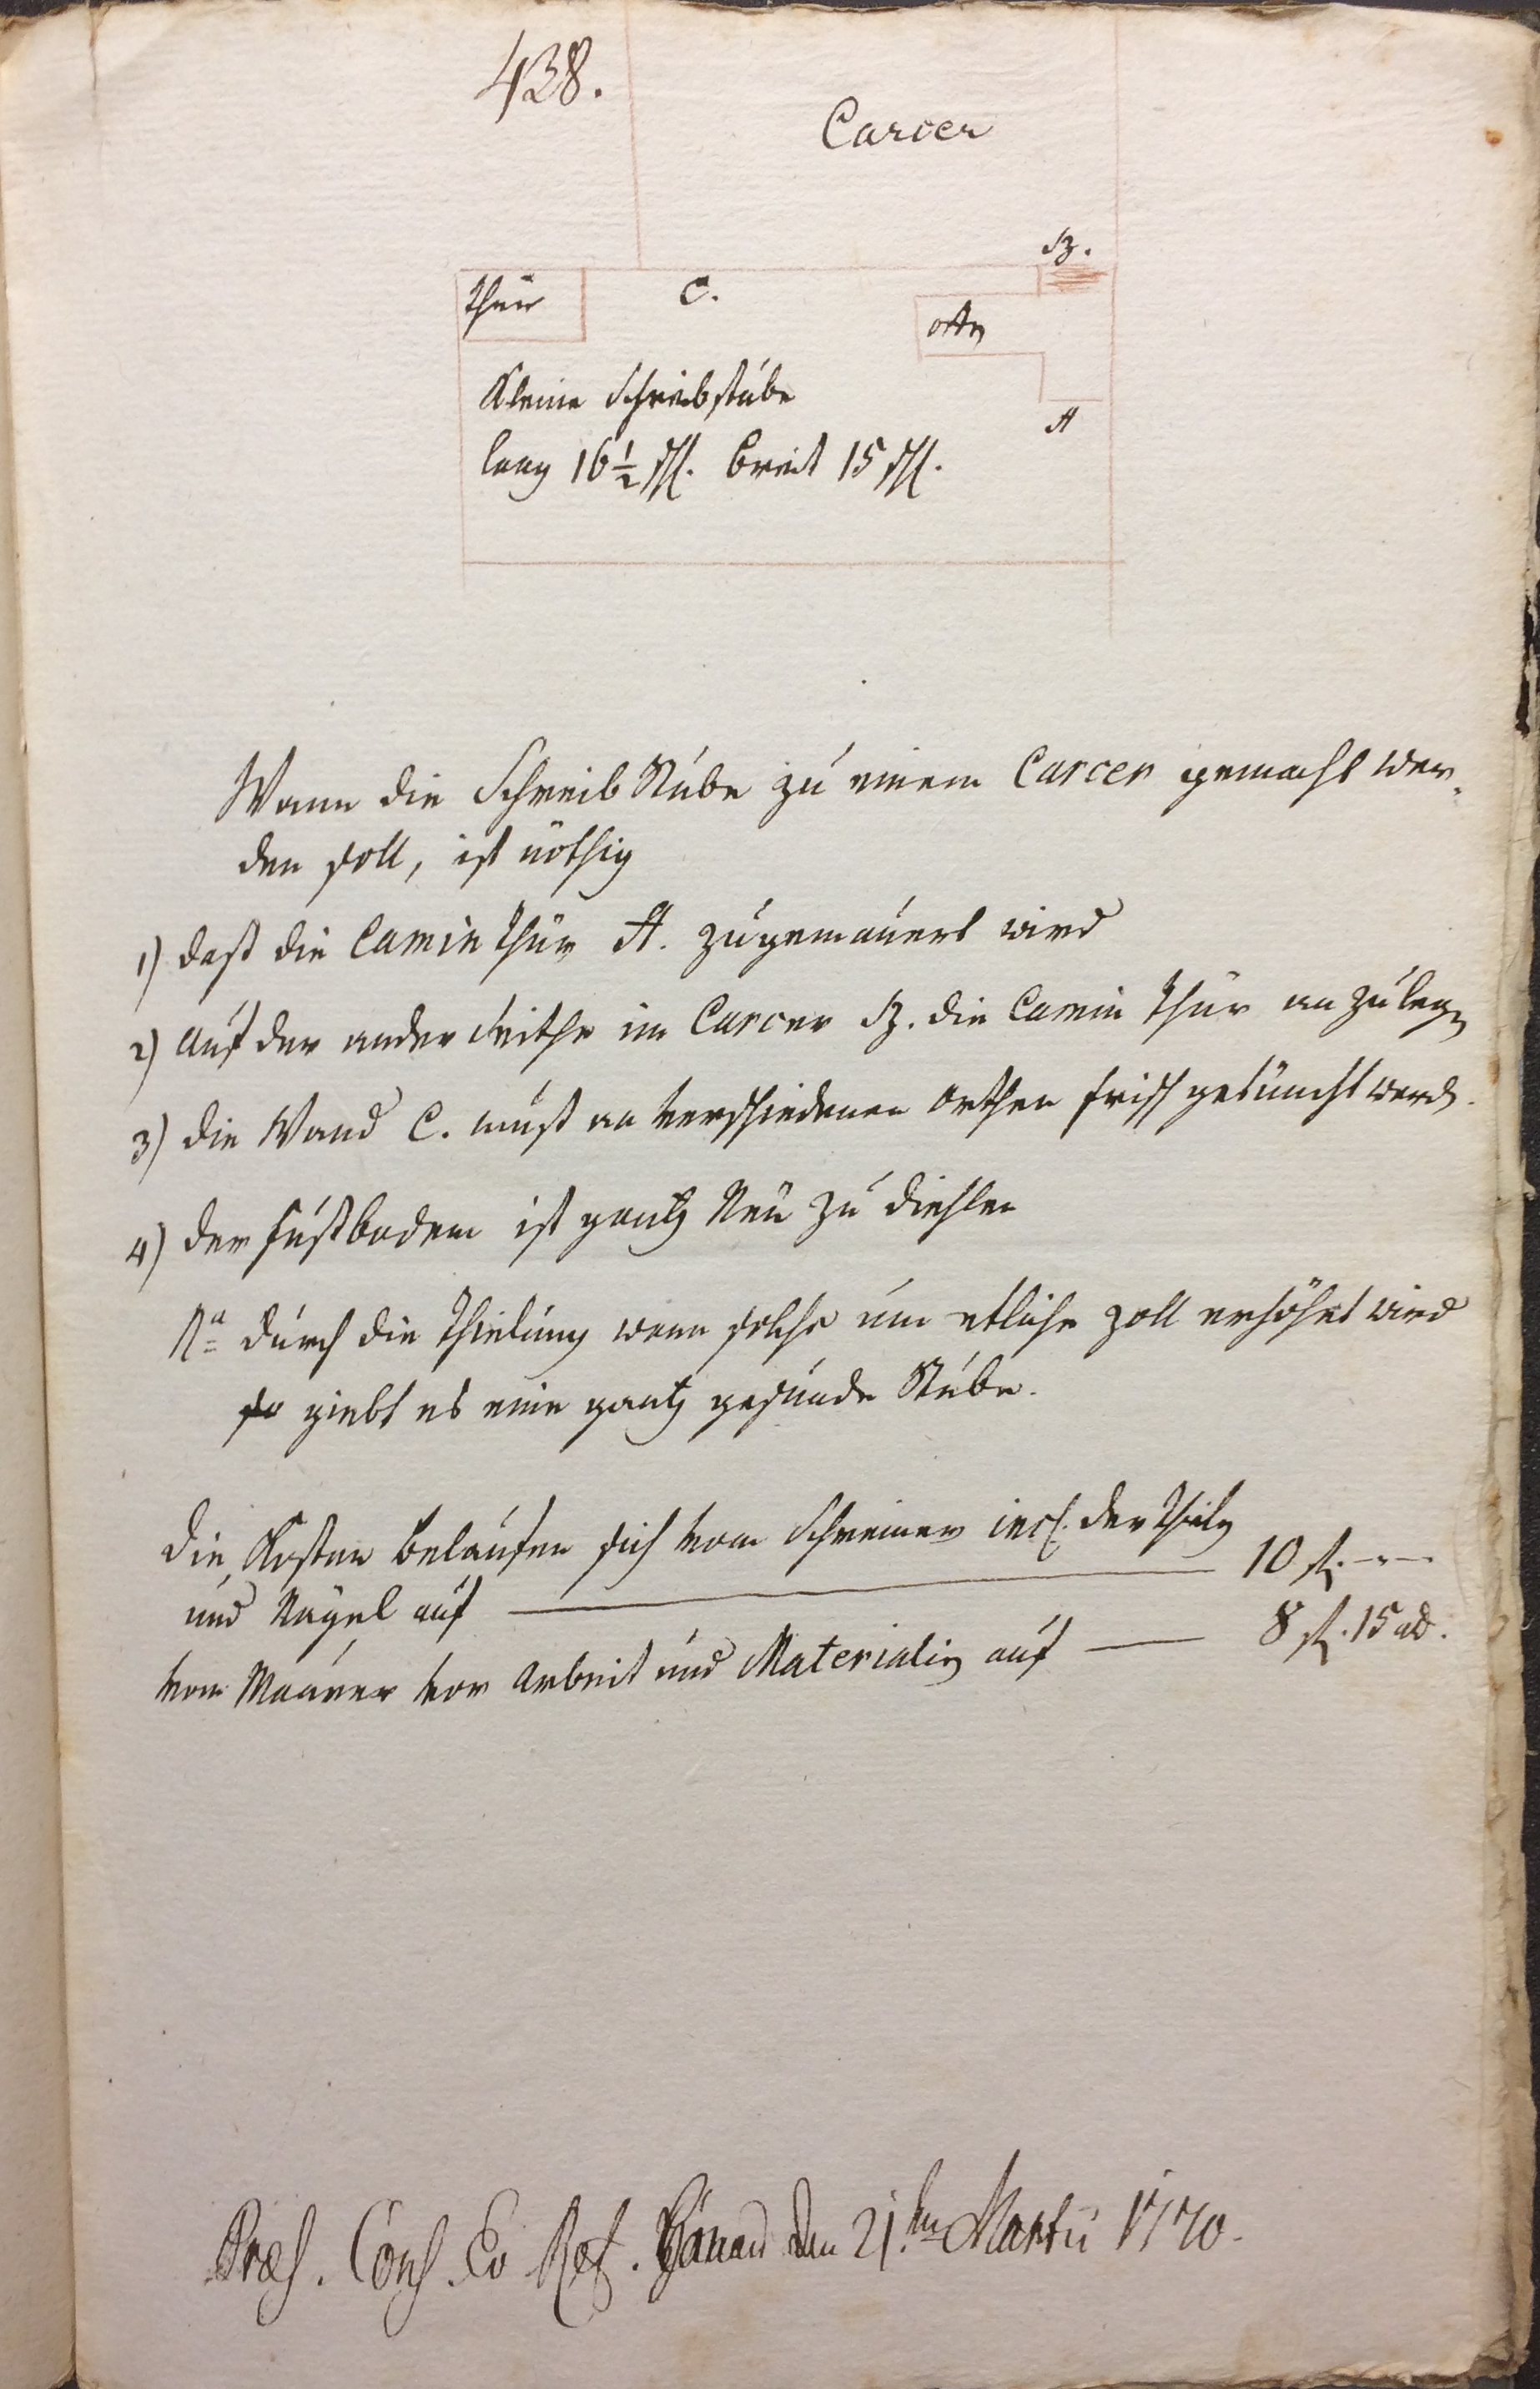 438.
Carcer
B.
Thür
C.
ofen
Kleine Schreibstube
A
lang 16 1/2 sch. breit 15 sch.
Wann die Schreib Stube zu einem Carcer gemacht wer-
den soll, ist nöthig
1) dast die Camin Thür A. zugemauert wird
2) auf der ander Seithe im Carcer B. die Camin Thür an zu legen
3) die Wand C. must an verschiedenen orthen frisch getüncht werden.
4) der Fustboden ist gantz Neu zu diehlen
Na durch die Thielung wenn solche um etliche zoll erhöhet wird
so giebt es eine gantz gesunde Stube.
Die Kosten belaufen sich vom Schreiner incl. der Thielen
und Nägel auf — 10 fl. ---
vom Maurer vor Arbeit und Materialien auf — 8 fl. 15 alb.
Præs. Cons. Ev Ref. Hanau den 21.ten Martii 1770.